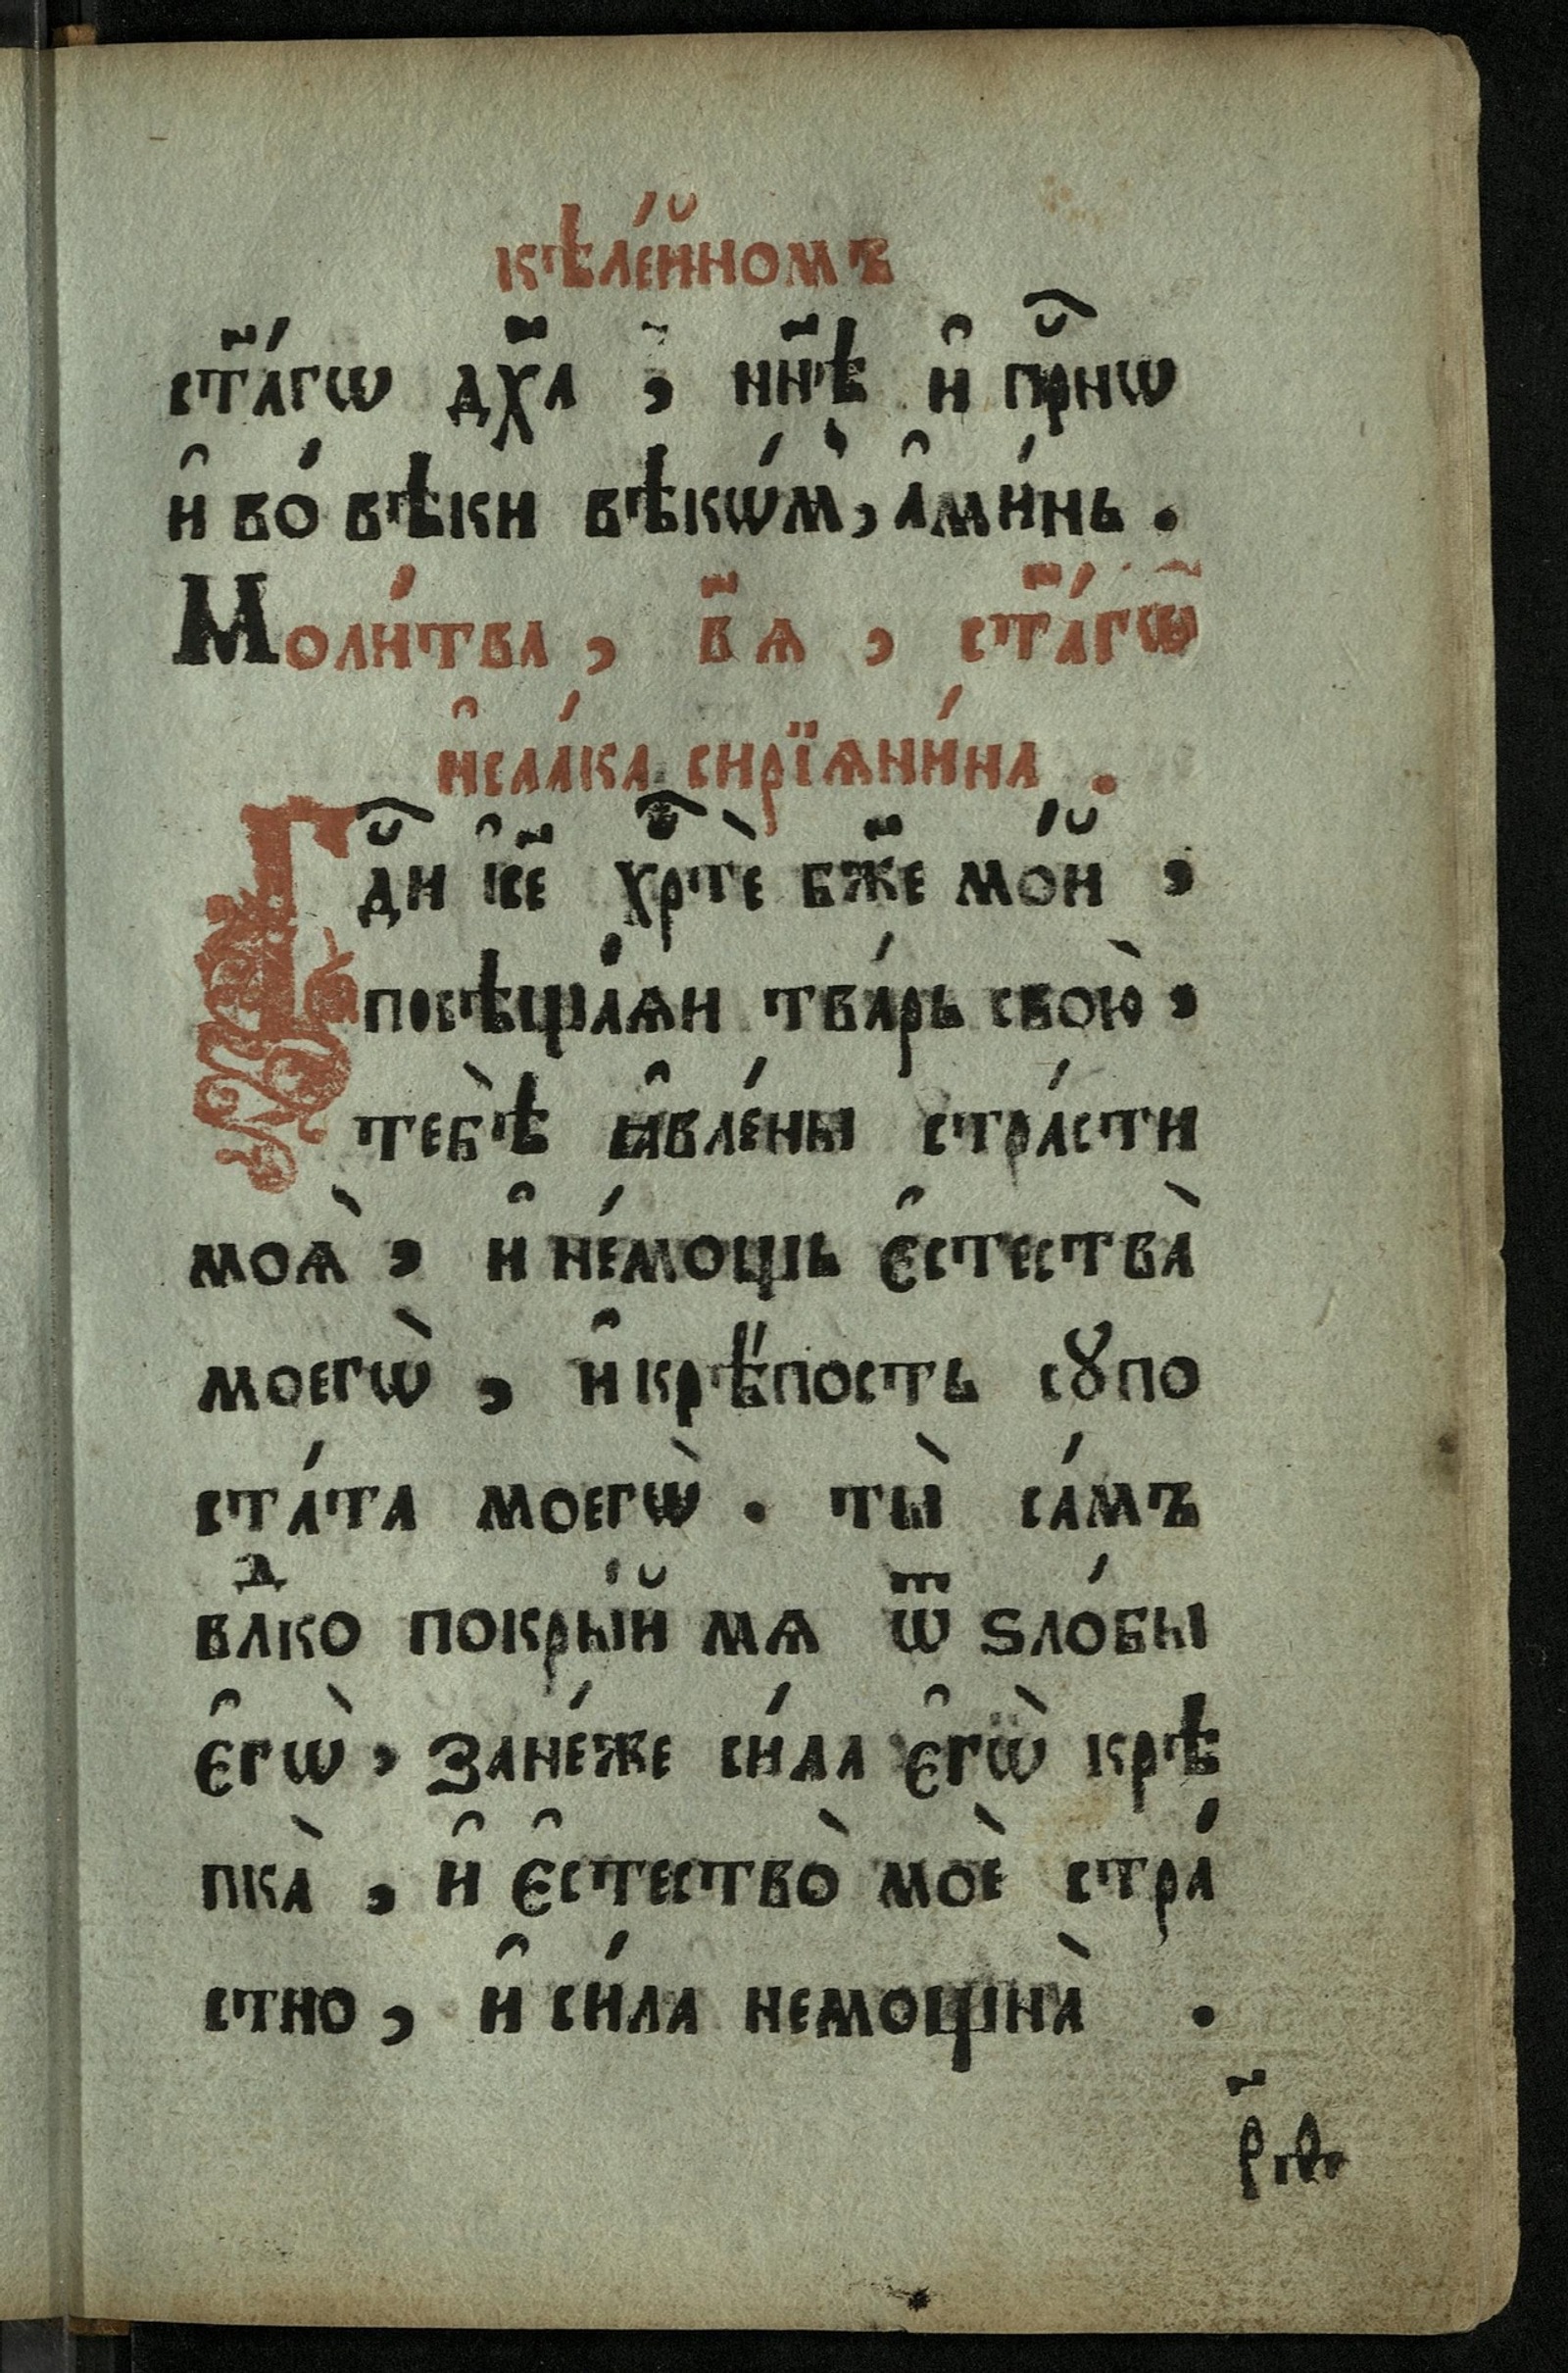 кѣле́йномъ
ст҃а́гѡ дх҃а, нн҃ѣ и҆ прⷭ҇нѡ
и҆ во́ вѣки вѣкѡ́м̾, а҆ми́нь.
Моли́тва, в҃ѧ, ст҃а́гѡ
и҆саа́ка сирїѧни́на.
Гдⷭ҇и і҆с҃е хрⷭ҇тѐ бж҃е мо́й,
посѣща́ѧи тва́рь свою̀,
тебѣ̀ ꙗ҆вле́ны стра́сти
моѧ̀, и҆ не́мощь є҆стества̀
моегѡ̀, и҆ крѣ́пость сꙋпо
ста́та моегѡ̀. ты̀ са́мъ
влⷣко покры́й мѧ ѿ ѕло́бы
є҆гѡ̀, зане́же си́ла є҆гѡ̀ крѣ
пка̀, и҆ є҆стество̀ моѐ стра́
стно, и҆ си́ла немощна̀.